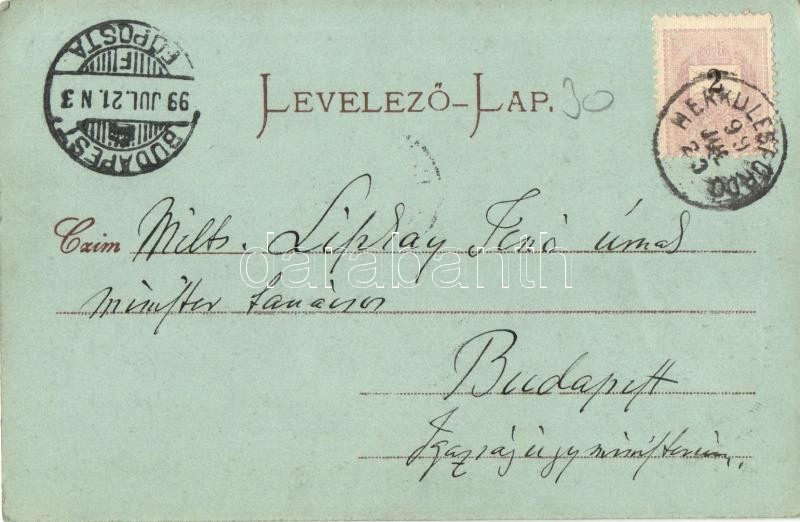 BUDAPEST
99 JUL. 21. N 3
FŐPOSTA
LEVELEZŐ-LAP.
30
2
HERKULESFÜRDŐ
99
JUL
20
Czim Mélts. Lipthay Jenő úrnak
darabanth
minister tanácsos
Budapest
Igazságügyministerium.